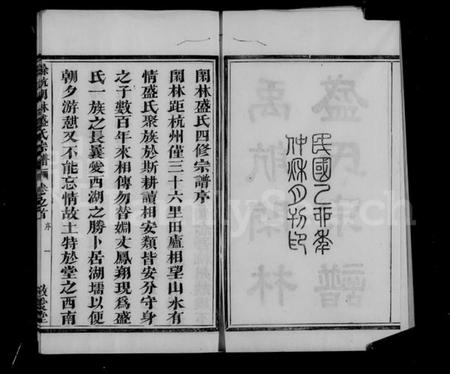 民國乙亥季
仲秋月刊印
閑林盛氏四修宗譜序
閑林距杭州僅三十六里田廬相望山水有
情盛氏聚族於斯耕讀相安類皆安分守身
之子數百年來相傳勿替嫺丈鳳翔現為盛
氏一族之長曩愛西湖之勝卜居湖壖以便
朝夕游憩又不能忘情故土特於堂之西南
餘杭閑林盛氏宗譜 卷之首 序 一
FamilySearch